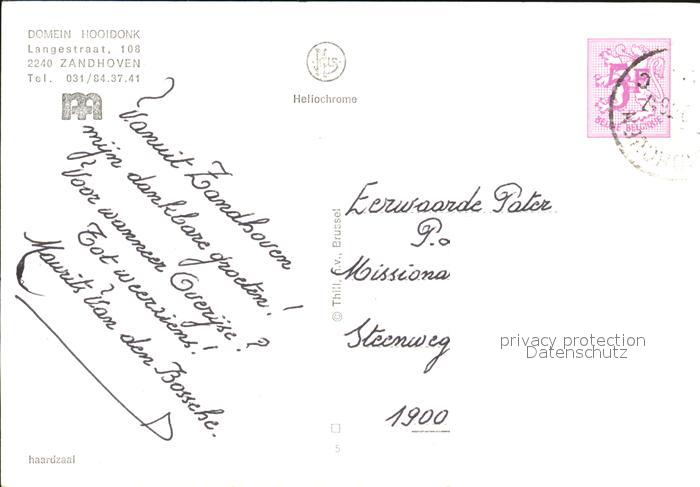 DOMEIN HOOIDONK
Langestraat, 108
2240 ZANDHOVEN
Tel. 031/84.37.41
Heliochrome
5F
BELGIE BELGIQUE
Vanuit Zandhoven
mijn dankbare groeten!
Voor wanneer Overijse?
Tot weerziens!
Maurits Van den Bossche.
© Thill, n.v., Brussel
Eerwaarde Pater
P.
Missiona
Steenweg
1900
privacy protection
Datenschutz
5
haardzaal